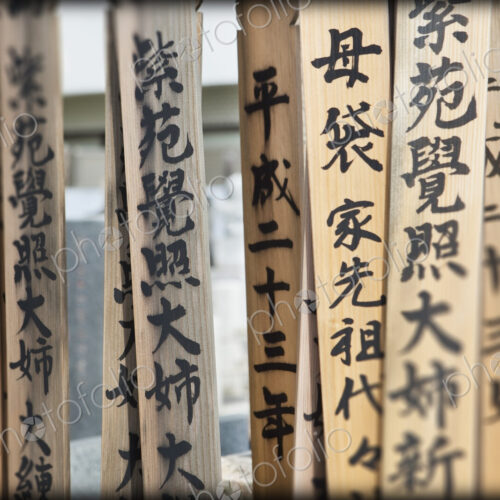 紫苑覺照大姉新
母袋家先祖代々
平成二十三年
紫苑覺照大姉 大
紫苑覺照大姉 大練
photofolio